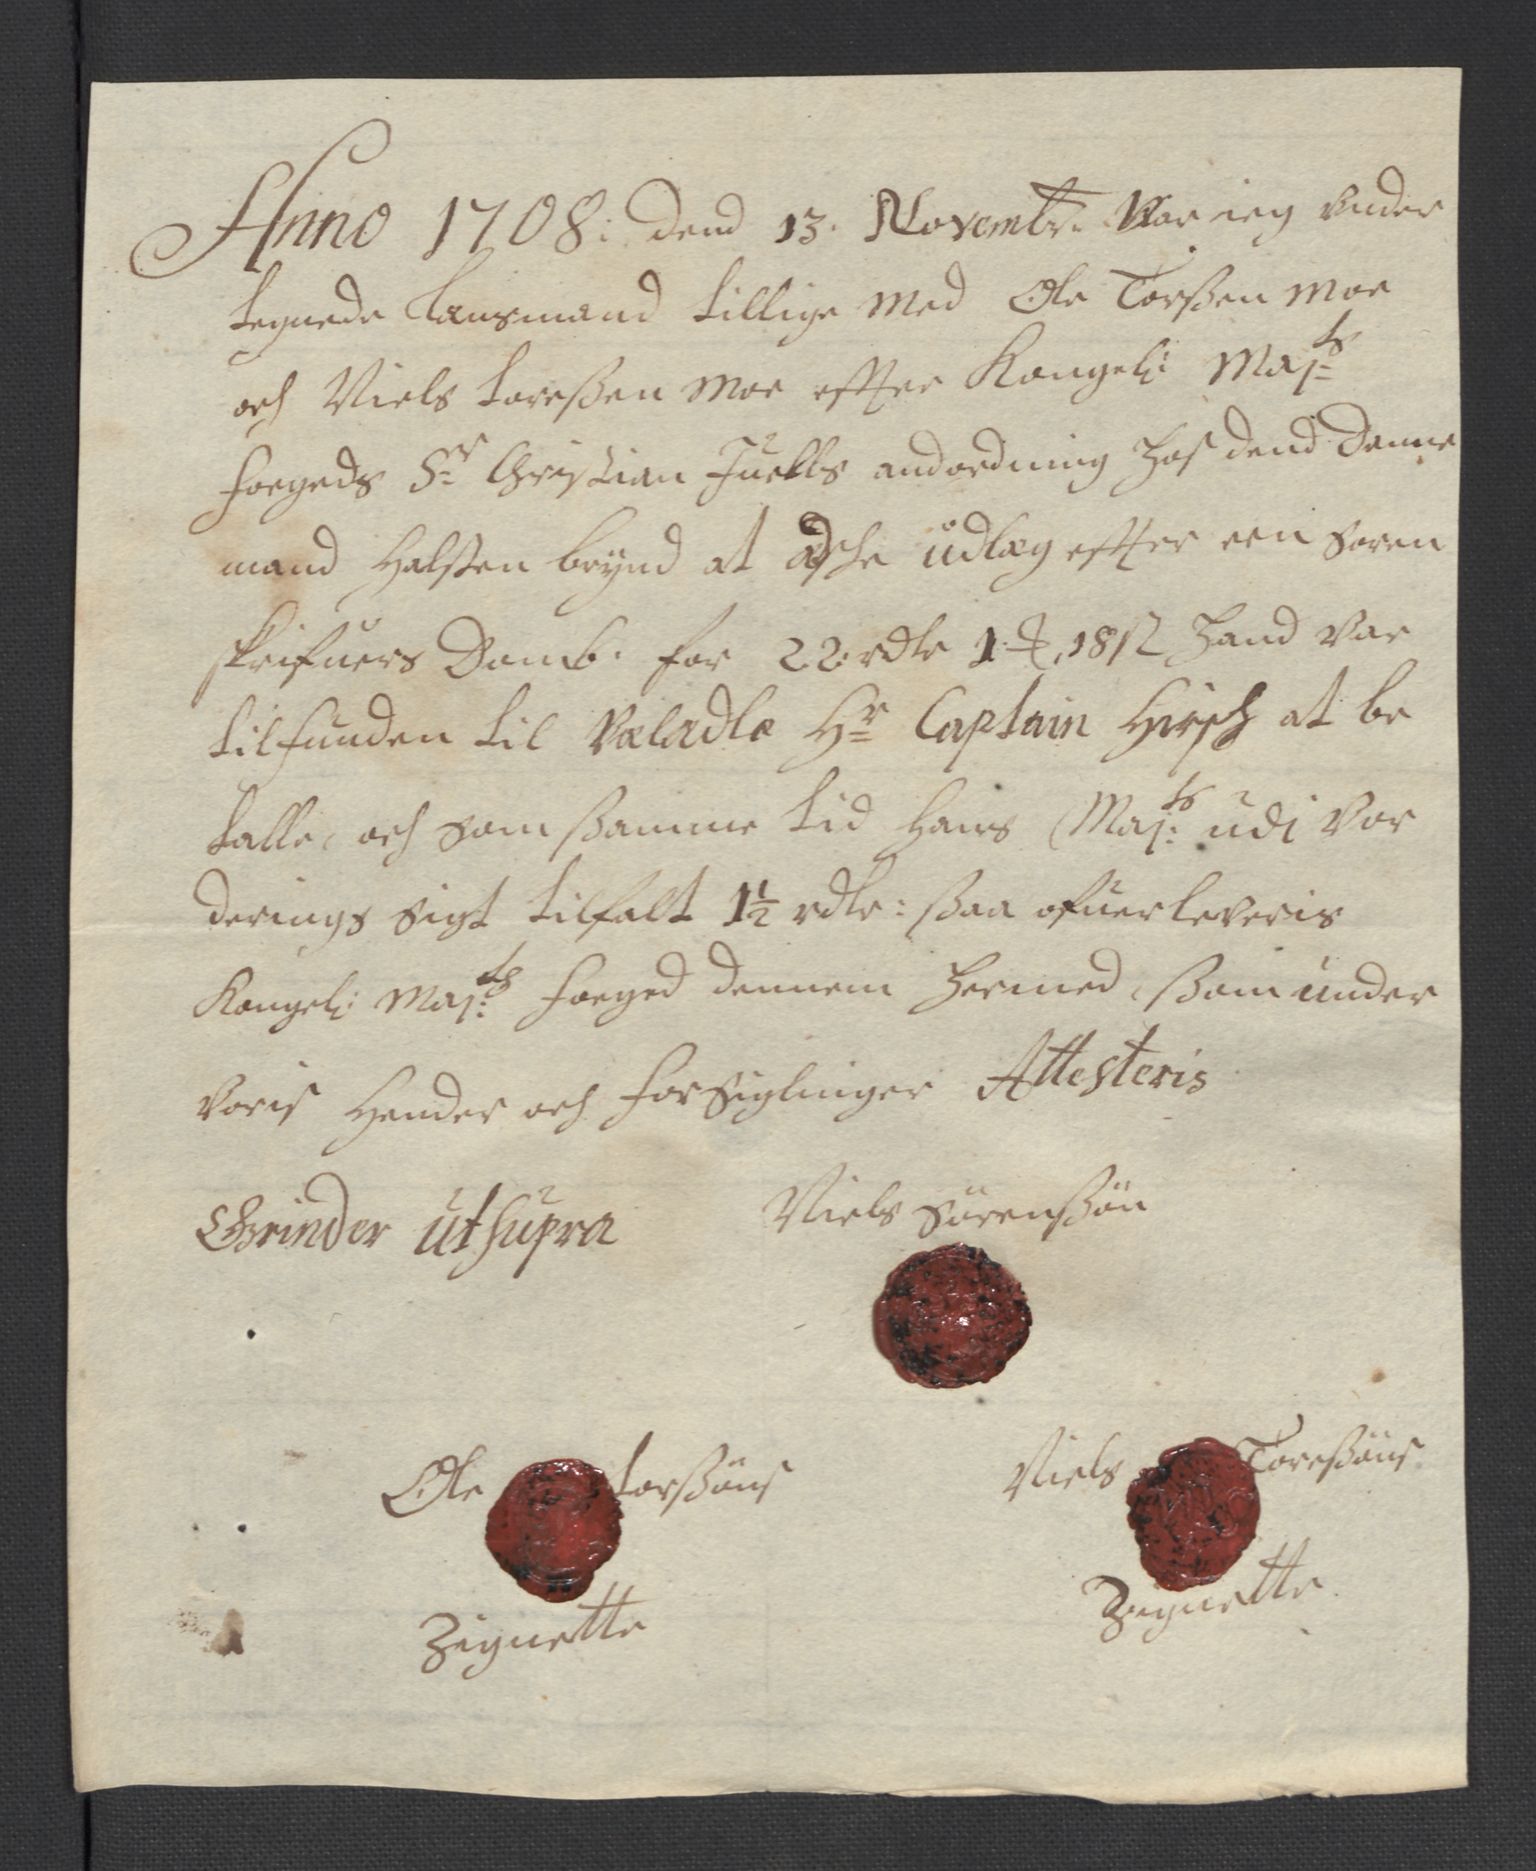 Anno 1708: dend 13. Novembr. Var ieg under
tegnede Lansmand tillige med Ole Torßen Moe
och Niels Toreßen Moe effter Kongel: Maj:ts
foegeds Sr Christian Juells andordning hos dend Danne
mand Halsten brynd at æsche üdlæg effter een Soren
skrifuers Domb. for 22 rdlr 1 18 s hand var
tilfunden til Vœladle Hr Captain Hirsch at be
talle, och som ßamme tid Hans Maj:ts üdj Vor
derings Sigt tilfalt 1½ rdlr: ßaa ofuerleveris
Kongel: Maj:ts foeged dennem hermed, ßom under
voris Hender och forSiglinger Attesteris
Grinder üt süpra Niels Sörenßön
Ole Torßöns Niels Toreßöns
Zignette Zignette